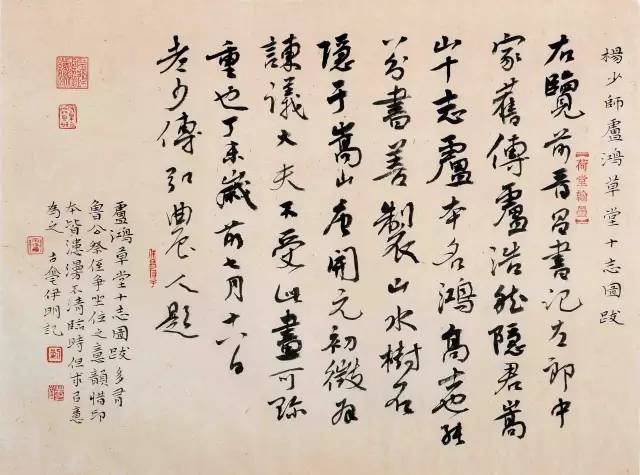 楊少師盧鴻草堂十志圖跋
右覽前晉昌書記左郎中
家舊傳盧浩然隱君嵩
山十志盧本名鴻高士也能
八分書善製山水樹石
隱于嵩山唐開元初徵為
諫議大夫不受此畫可珍
重也丁未歲前七月十八日
老少傅弘農人題
盧鴻草堂十志圖跋多有
魯公祭侄爭坐位之意韻惜印
本皆漶漫不清臨時但求意
為之 伊明記